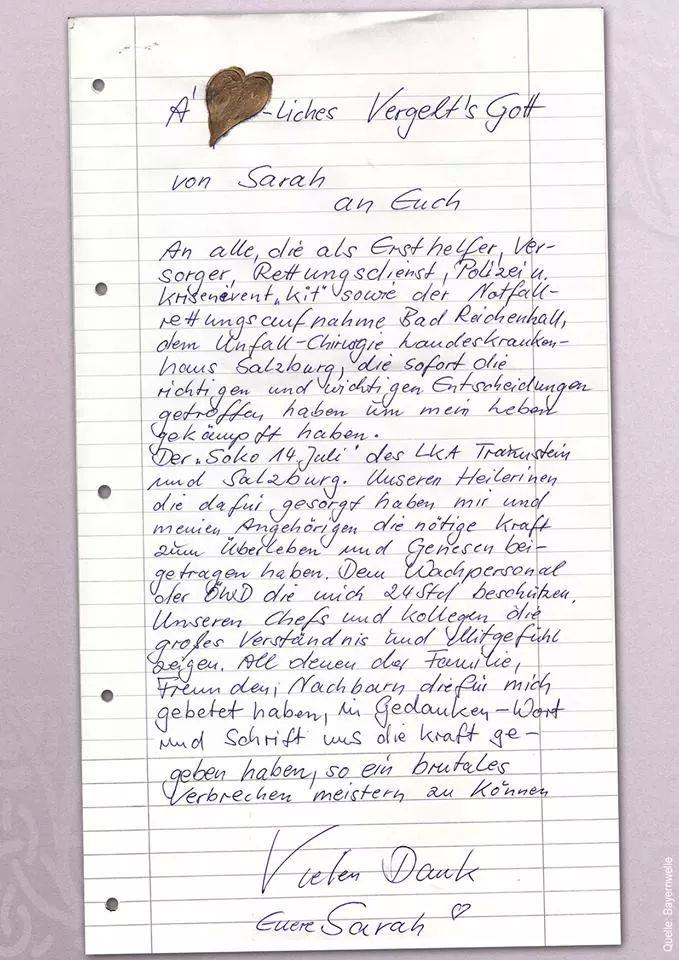 A' -liches Vergelt's Gott
von Sarah
an Euch
An alle, die als Ersthelfer, Ver-
sorger, Rettungsdienst, Polizei u.
Krisenevent „Kit" sowie der Notfall-
rettungsaufnahme Bad Reichenhall,
dem Unfall-Chirugie Landeskranken-
haus Salzburg, die sofort die
richtigen und wichtigen Entscheidungen
getroffen haben um mein Leben
gekämpft haben.
Der „Soko 14 Juli" des LKA Traunstein
und Salzburg. Unseren Heilerinen
die dafür gesorgt haben mir und
meinen Angehörigen die nötige Kraft
zum Überleben und Genesen bei-
getragen haben. Dem Wachpersonal
der ÖWD die mich 24 Std beschützen.
Unseren Chefs und Kollegen die
großes Verständnis und Mitgefühl
zeigen. All denen der Familie,
Freunden, Nachbarn die für mich
gebetet haben, in Gedanken-Wort
und Schrift uns die Kraft ge-
geben haben, so ein brutales
Verbrechen meistern zu können
Vielen Dank
Euere Sarah ♡
Quelle: Bayernwelle